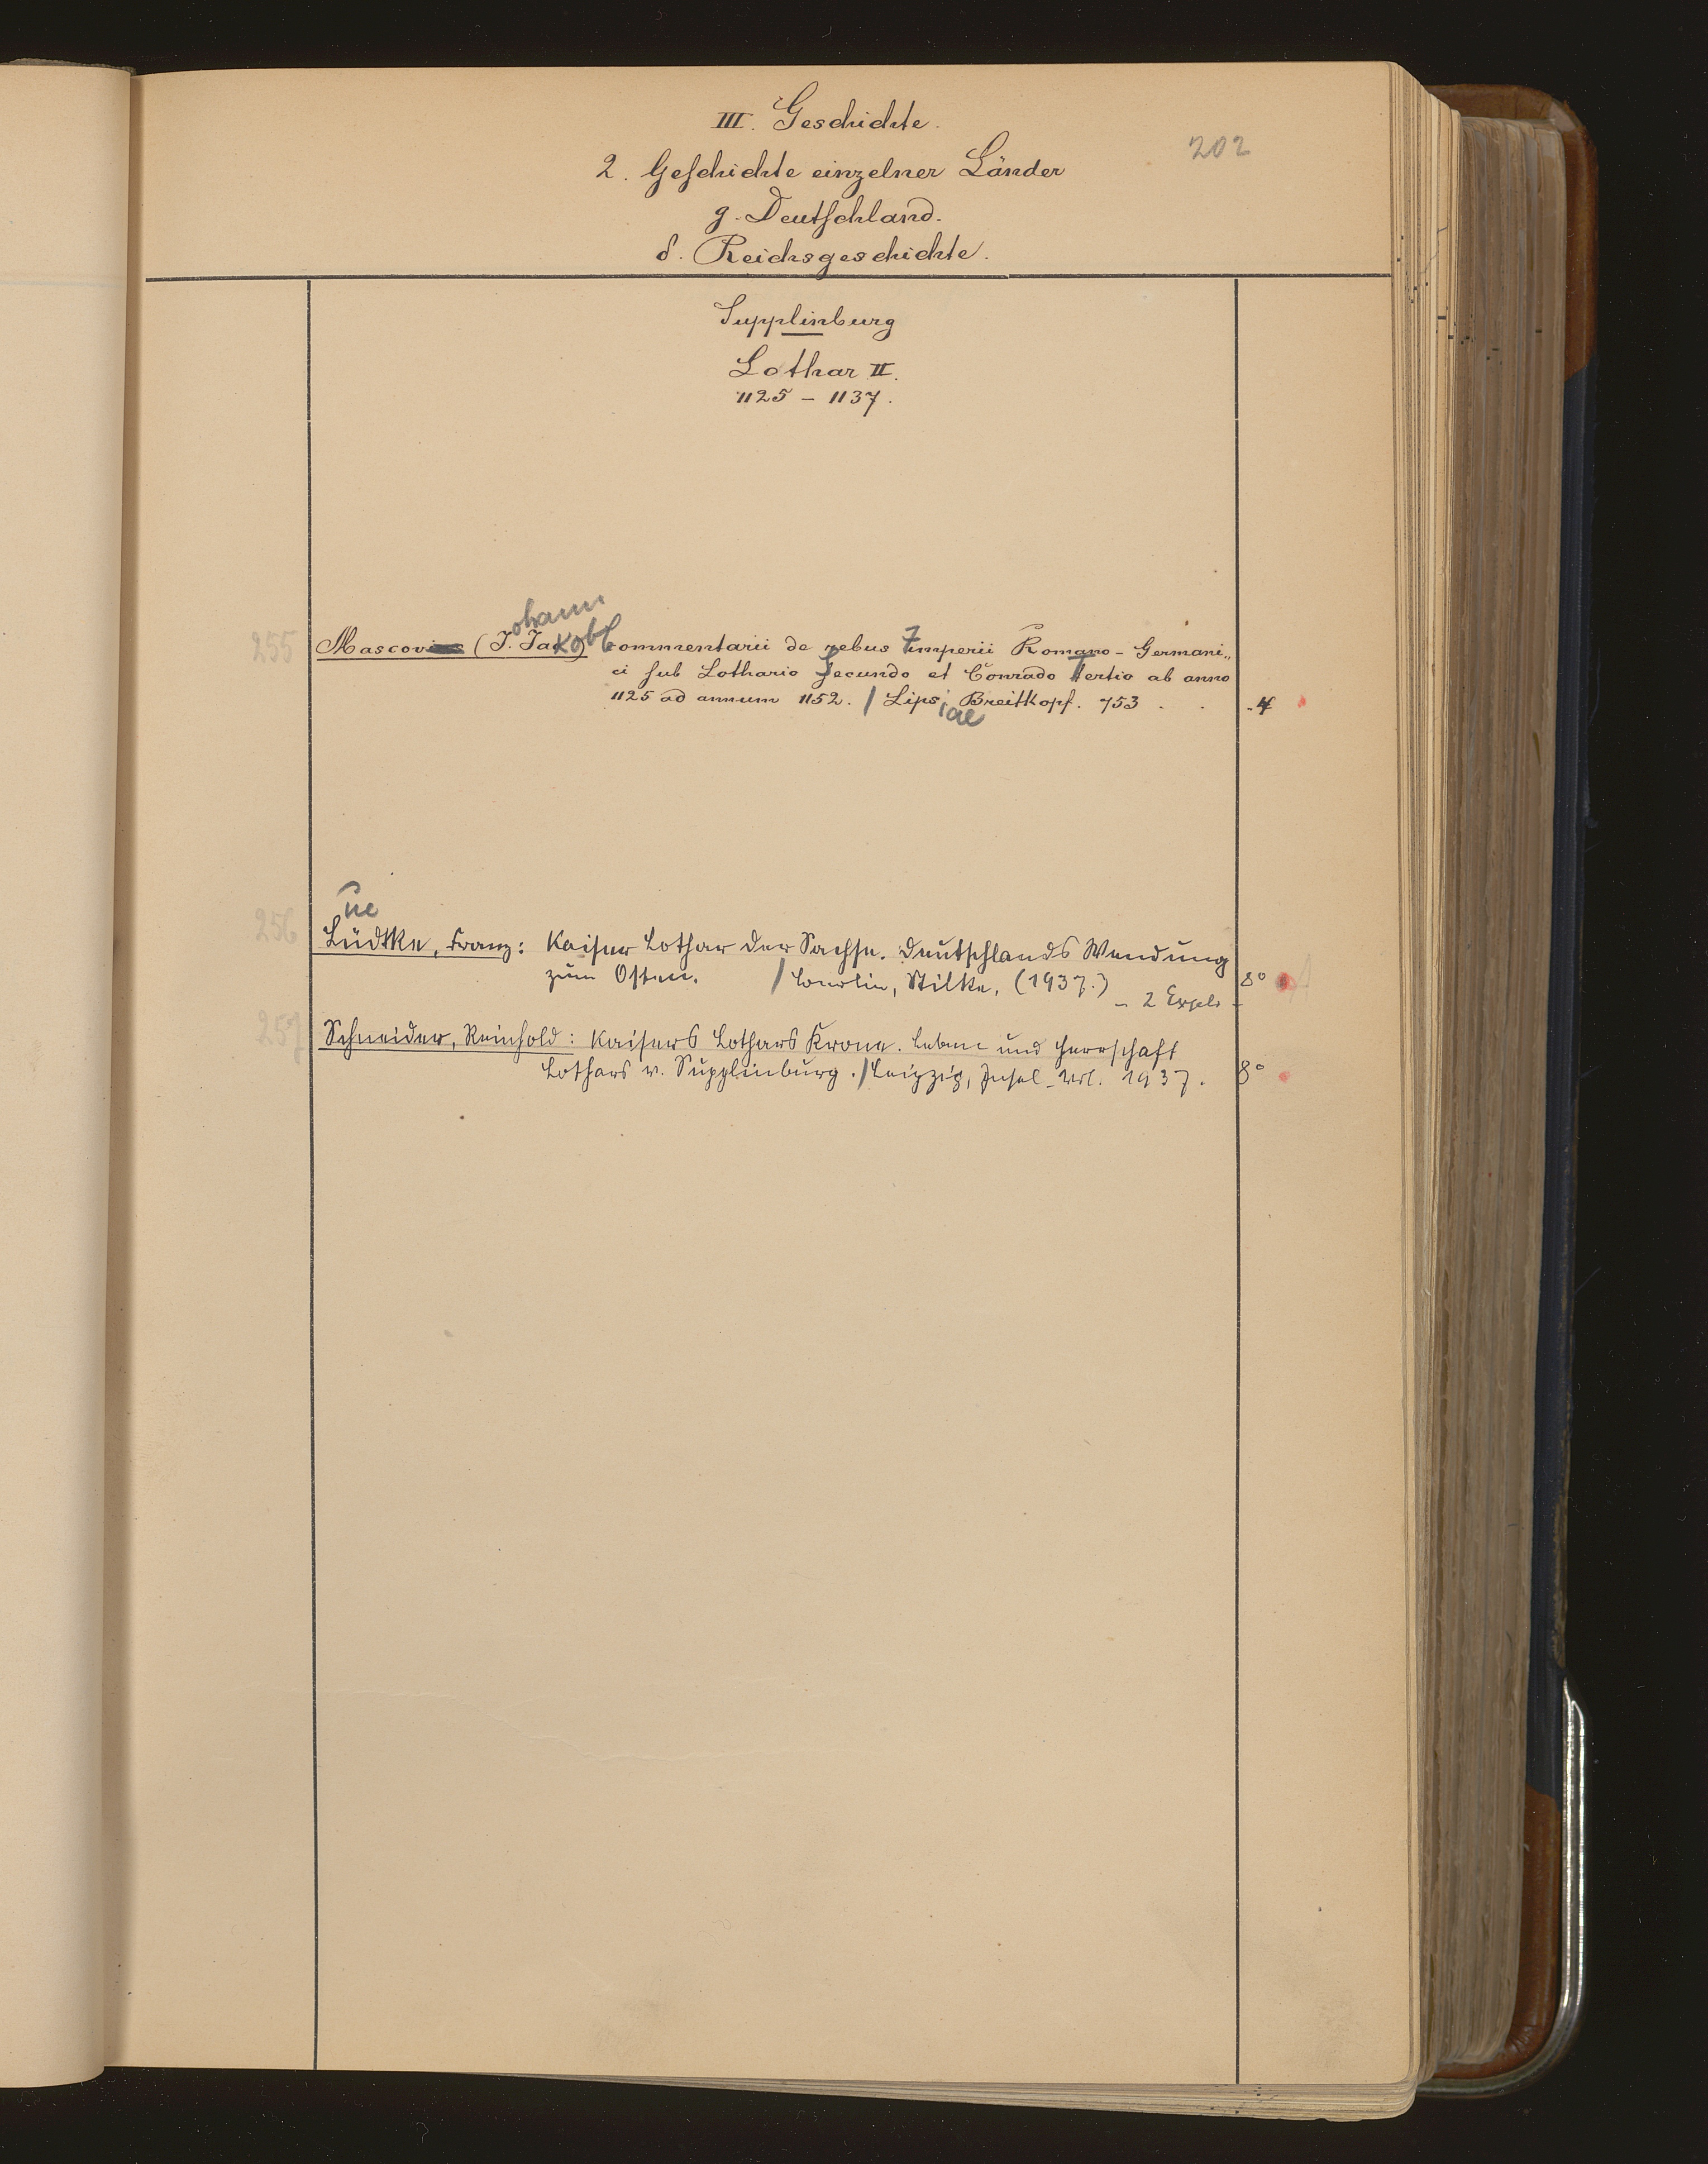 202
III. Geschichte.
2. Geschichte einzelner Länder
g. Deutschland.
δ. Reichsgeschichte.
Supplinburg
Lothar II.
1125 – 1137.
ohann
255 Mascov (J. Jakob) Commentarii de rebus Imperii Romano-Germani„
ci sub Lothario Secundo et Conrado Tertio ab anno
1125 ad annum 1152. / Lipsiae Breitkopf. 753 . . -4
ue
256 Lüdtke, Franz: Kaiser Lothar der Sachse. Deutschlands Wendung
zum Osten. / Berlin, Stilke, (1937.) – 2 Expl. – 8°
257 Schneider, Reinhold: Kaisers Lothars Krone. Leben und Herrschaft
Lothars v. Supplinburg. / Leipzig, Insel-Verl. 1937. 8°